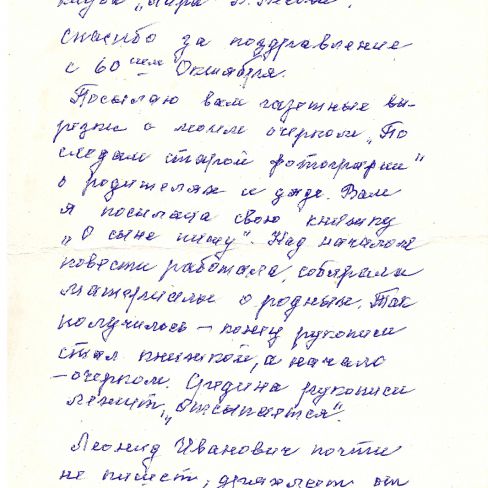 клуба „Лира П.
Спасибо за поздравление
с 60ием Октября.
Посылаю вам газетные вы-
резки с моим очерком „По
следам старой фотографии"
о родителях и дяде. Вам
я посылала свою книжку
„О сыне пишу". Над началом
повести работала, собирала
материалы о родных. Так
получилось – конец рукописи
стал книжкой, а начало
– очерком. Средина рукописи
лежит, „отсыпается".
Леонид Иванович почти
не пишет,